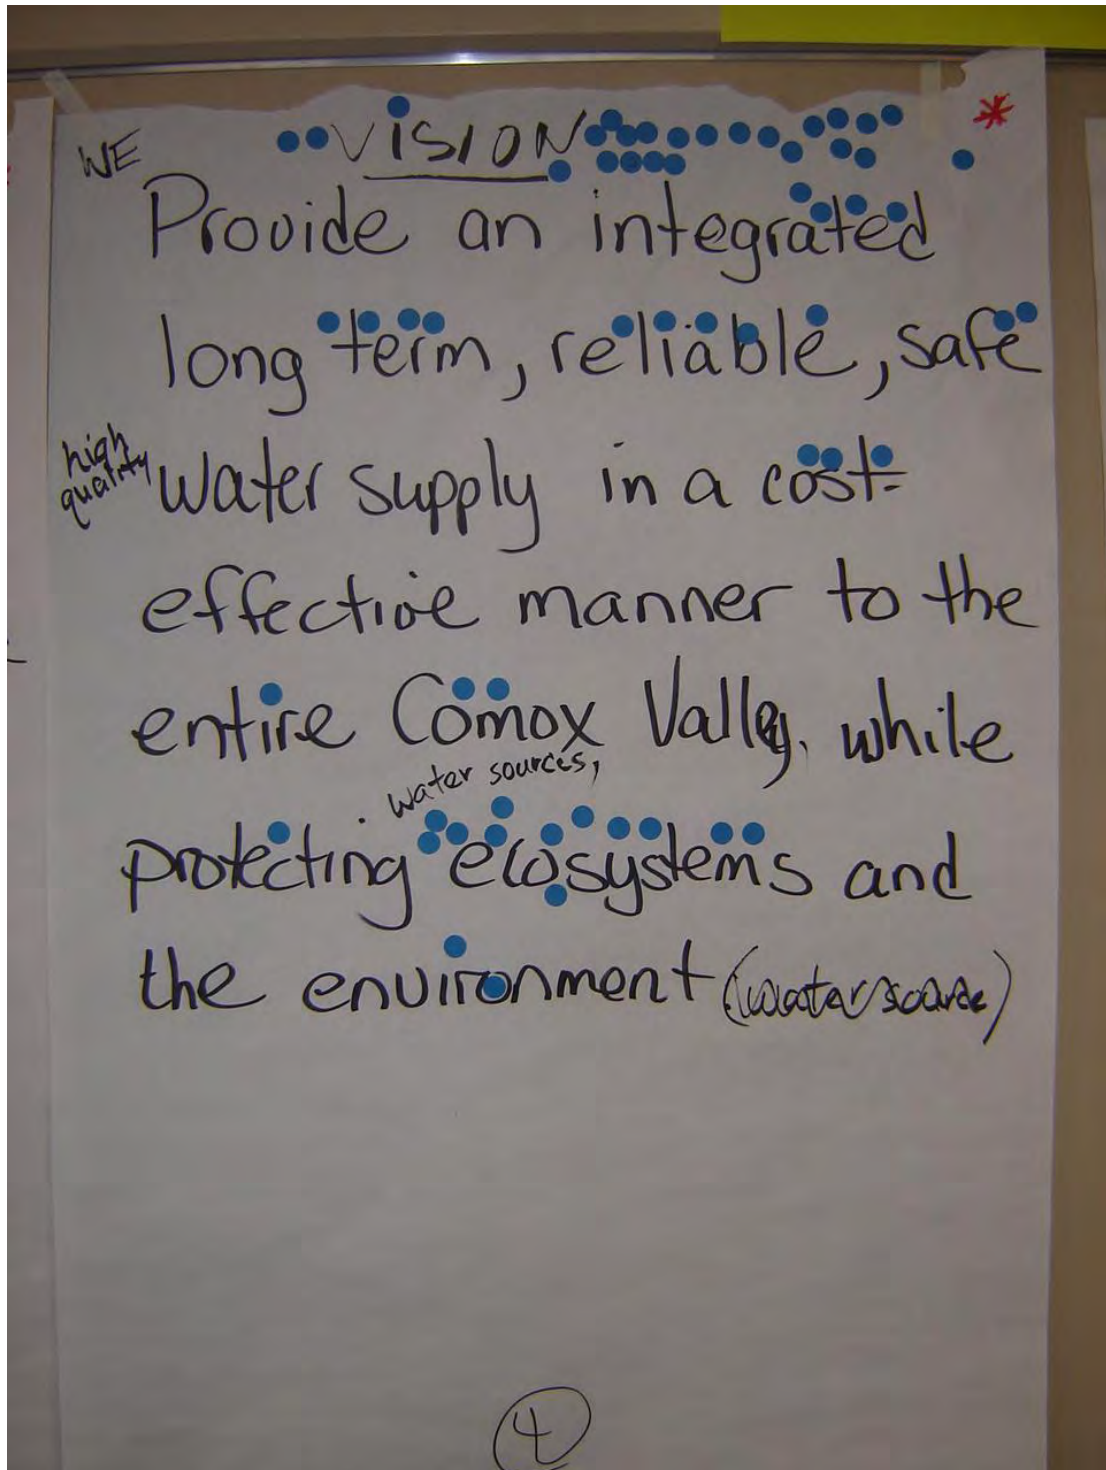 VISION
WE
Provide an integrated
long term, reliable, safe
high
quality
water supply in a cost-
effective manner to the
entire Comox Valley, while
water sources,
protecting ecosystems and
the environment (water source)
4